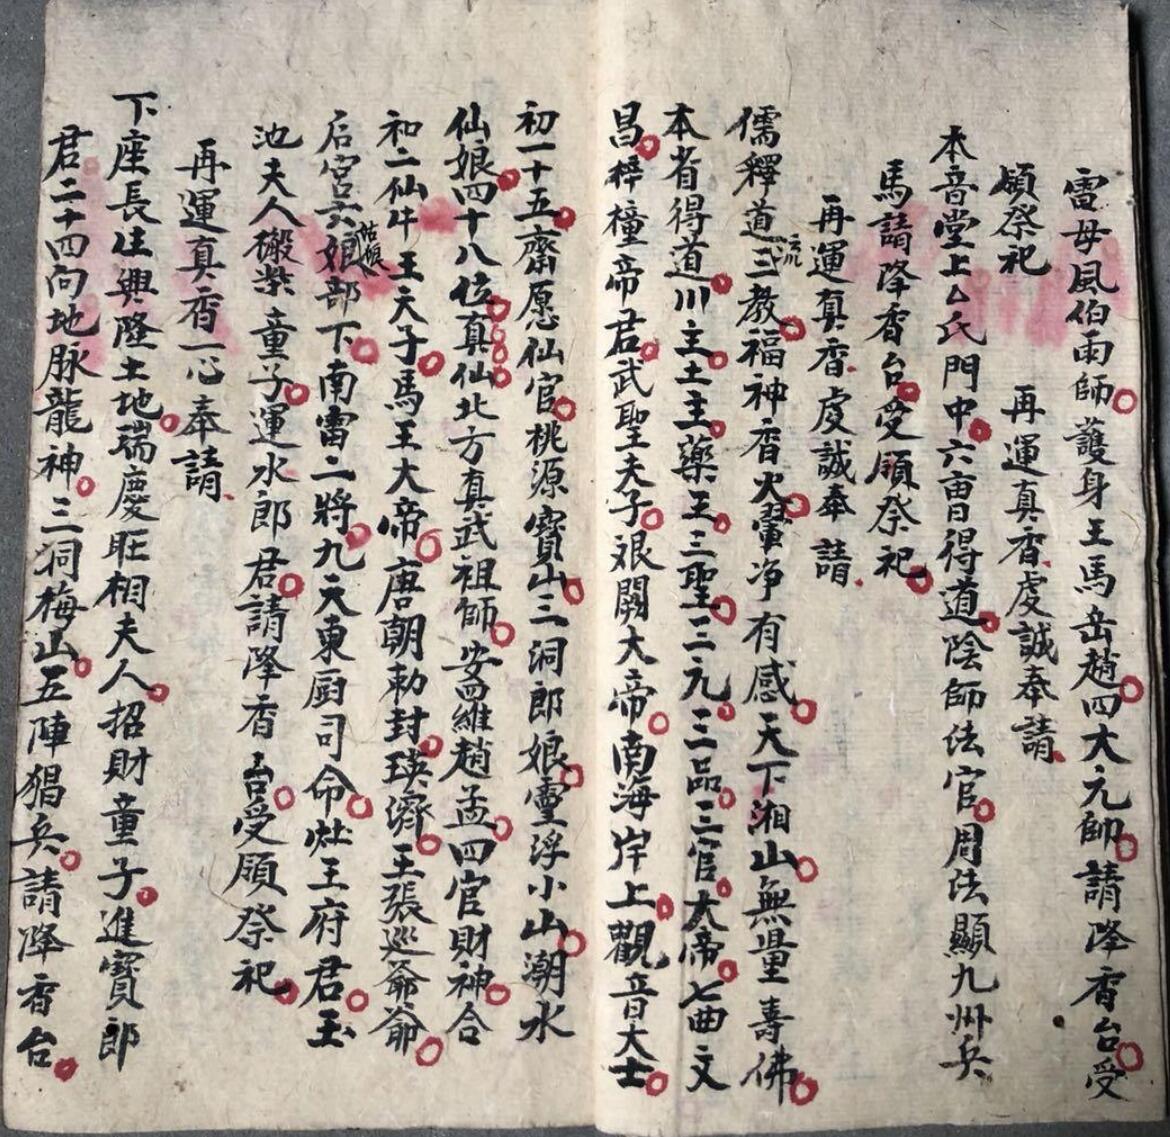 雷母風伯雨師護身王馬岳趙四大元帥請降香台受
領祭祀　再運真香虔誠奉請
本音堂上厶氏門中六亩得道陰師法官周法顯九州兵
馬請降香台受領祭祀
再運真香虔誠奉請
儒釋道三教福神香火輩净有感天下湘山無量壽佛
本省得道川主土主藥王三聖三元三品三官大帝七曲文
昌梓橦帝君武聖夫子狠關大帝南海岸上觀音大士
初一十五齋愿仙官桃源寶山三洞郎娘雲浮小山潮水
仙娘四十八位真仙北方真武祖師安羅趙孟四官財神合
和二仙牛王天子馬王大帝唐朝勅封瑛濟王張巡爺爺
后宮六娘部下南雷二將九天東厨司命灶王府君玉
池夫人搬柴童子運水郎君請降香台受領祭祀
再運真香一心奉請
下座長生興隆土地瑞慶旺相夫人招財童子進寶郎
君二十四向地脉龍神三洞梅山五陣猖兵請降香台